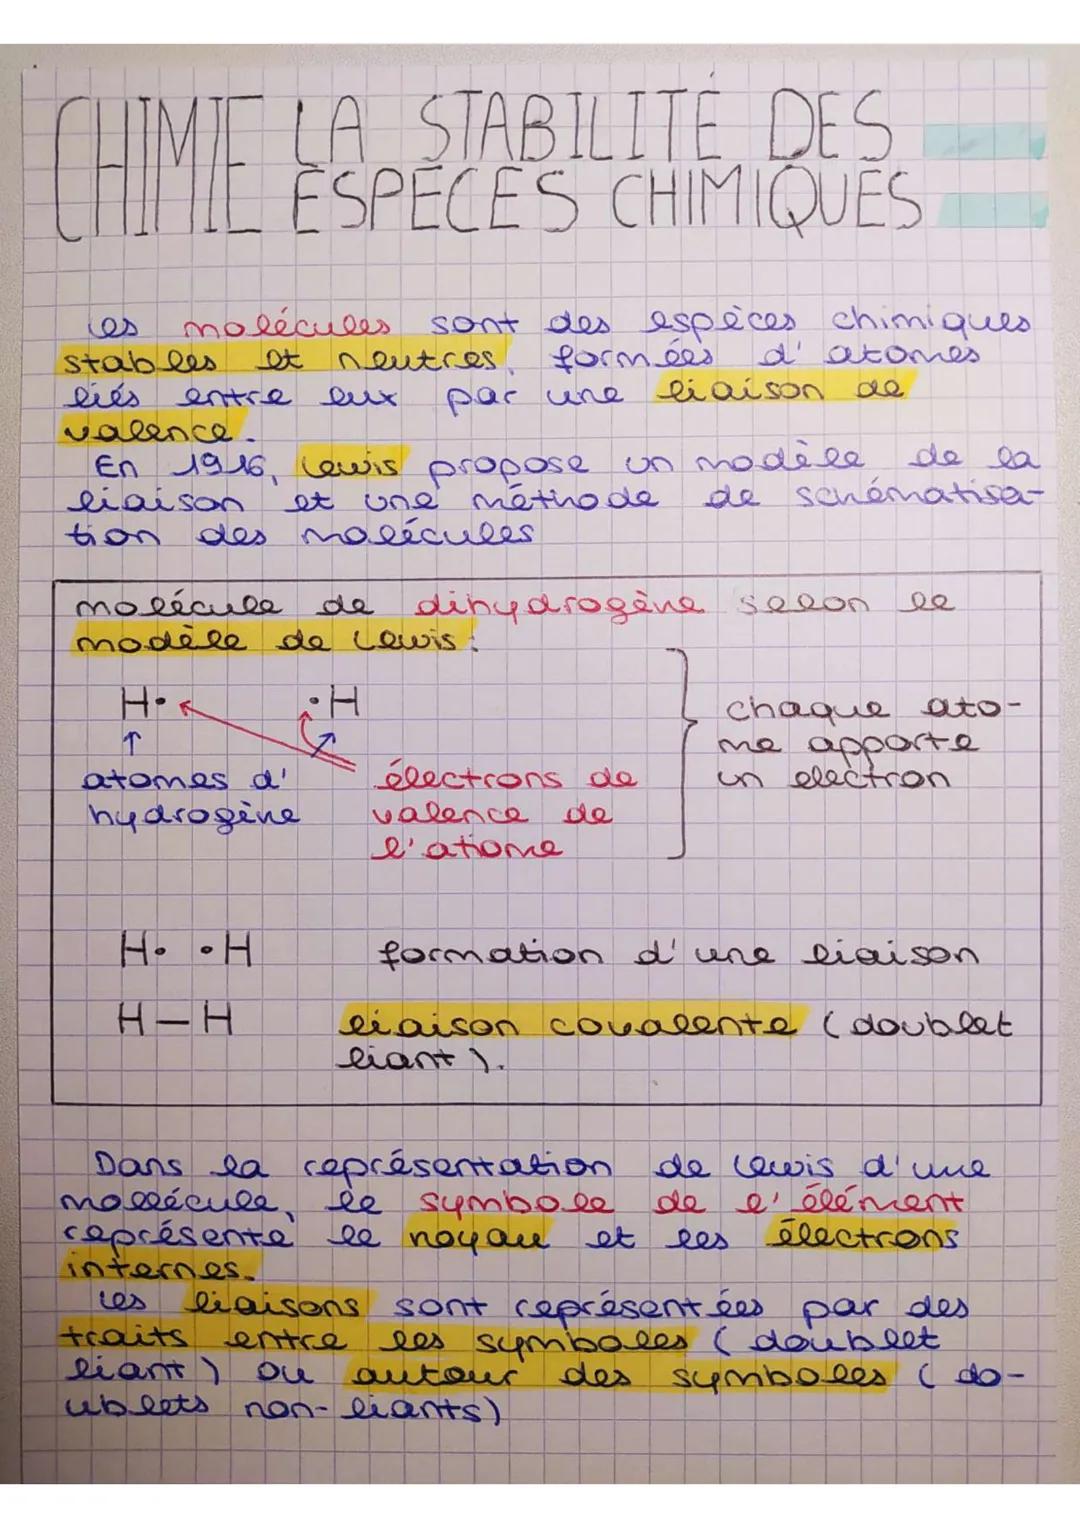 CHIMIE LA STABILITÉ DES
ESPECES CHIMIQUES
Les molécules sont des espèces chimiques
stables et neutres, formées d'atomes
liés entre eux par une liaison de
valence.
En 1916, Lewis propose un modèle de la
liaison et une méthode de schématisa-
tion des molécules
molécule de dihydrogène selon le
modèle de Lewis :
H• •H
chaque ato-
me apporte
un electron
atomes d'
hydrogène
électrons de
valence de
l'atome
H• •H formation d'une liaison
H—H liaison covalente (doublet
liant).
Dans la représentation de Lewis d'une
mollécule, le symbole de l'élément
représente le noyau et les électrons
internes.
Les liaisons sont représentées par des
traits entre les symboles (doublet
liant) ou autour des symboles (do-
ublets non-liants)